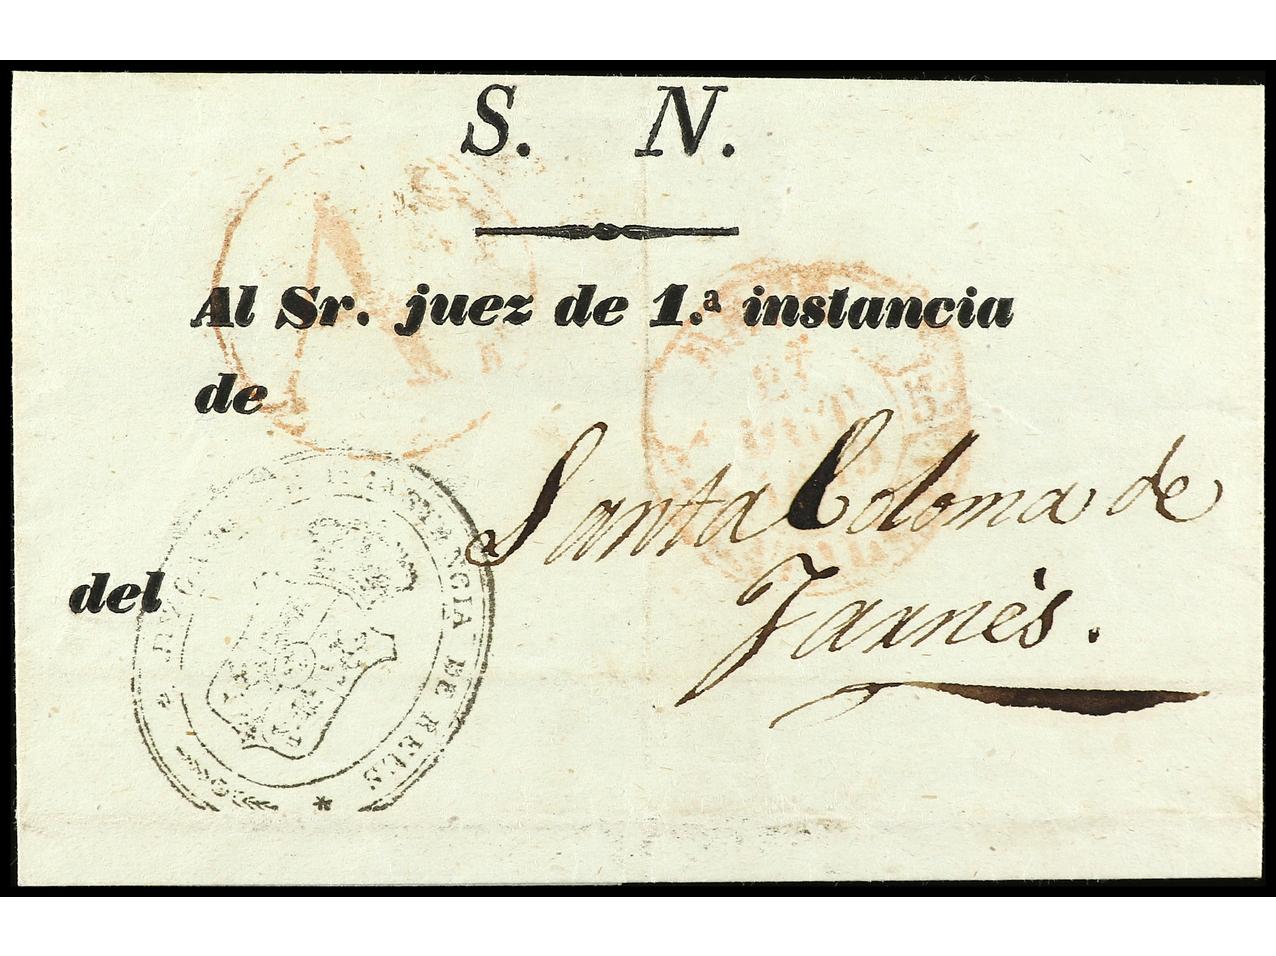 S. N.
Al Sr. juez de 1.ª instancia
de
Santa Coloma de
Farnés.
del
DE 1ª INSTANCIA DE REUS
A